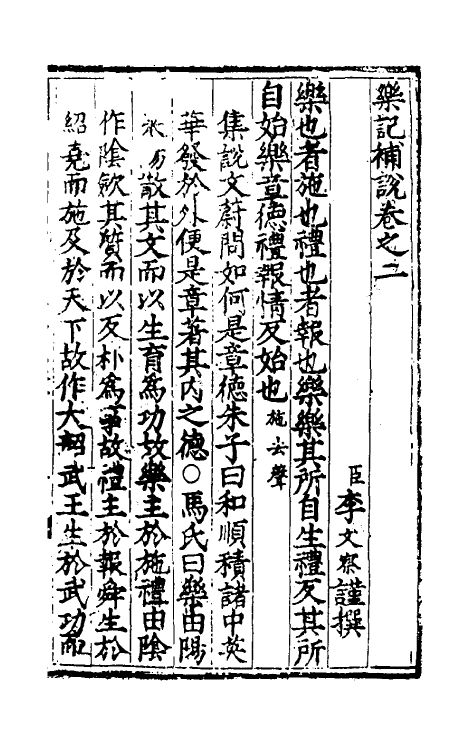 樂記補說卷之二
臣李文察謹撰
樂也者施也禮也者報也樂樂其所自生禮反其所
自始樂章德禮報情反始也施去聲
集說文蔚問如何是章德朱子曰和順積諸中英
華發於外便是章著其內之德○馬氏曰樂由陽
來陽散其文而以生育為功故樂主於施禮由陰
作陰斂其質而以反朴為事故禮主於報舜生於
紹堯而施及於天下故作大韶武王生於武功而